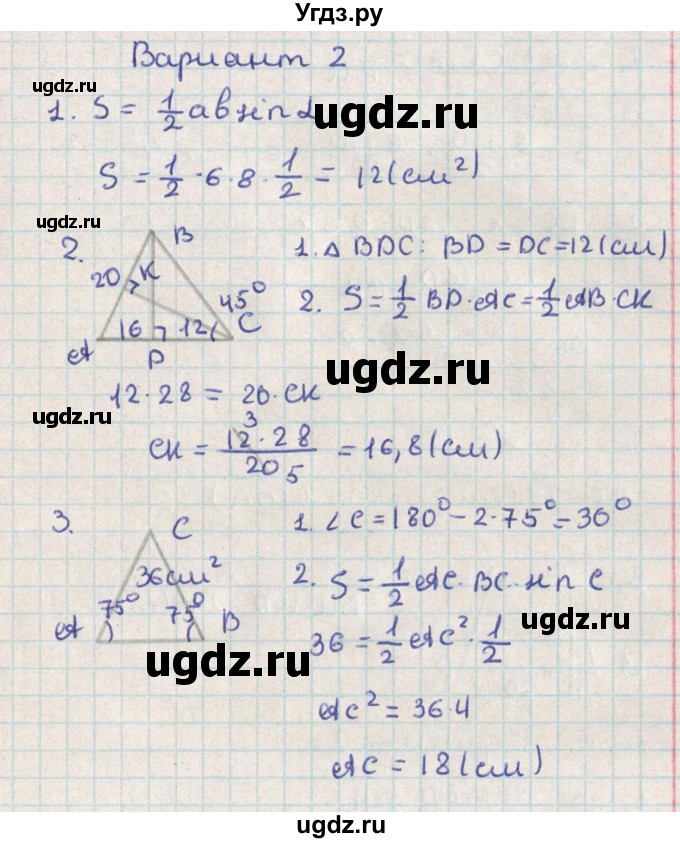 Угдз.ру
Вариант 2
ugdz.ru
1. S = 1/2 ab sin α
ugdz.ru
S = 1/2 · 6 · 8 · 1/2 = 12 (см²)
ugdz.ru
2.
B
20
K
45°
16
12
A
D
C
1. △ BDC: BD = DC = 12 (см)
ugdz.ru
2. S = 1/2 BD · AC = 1/2 AB · CK
ugdz.ru
12 · 28 = 20 · CK
ugdz.ru
CK = 12 · 28 / 20 = 16,8 (см)
3
5
3.
C
36 см²
75°
75°
A
B
1. ∠C = 180° − 2 · 75° = 30°
ugdz.ru
2. S = 1/2 AC · BC · sin C
ugdz.ru
36 = 1/2 AC² · 1/2
ugdz.ru
AC² = 36 · 4
ugdz.ru
AC = 18 (см)
ugdz.ru